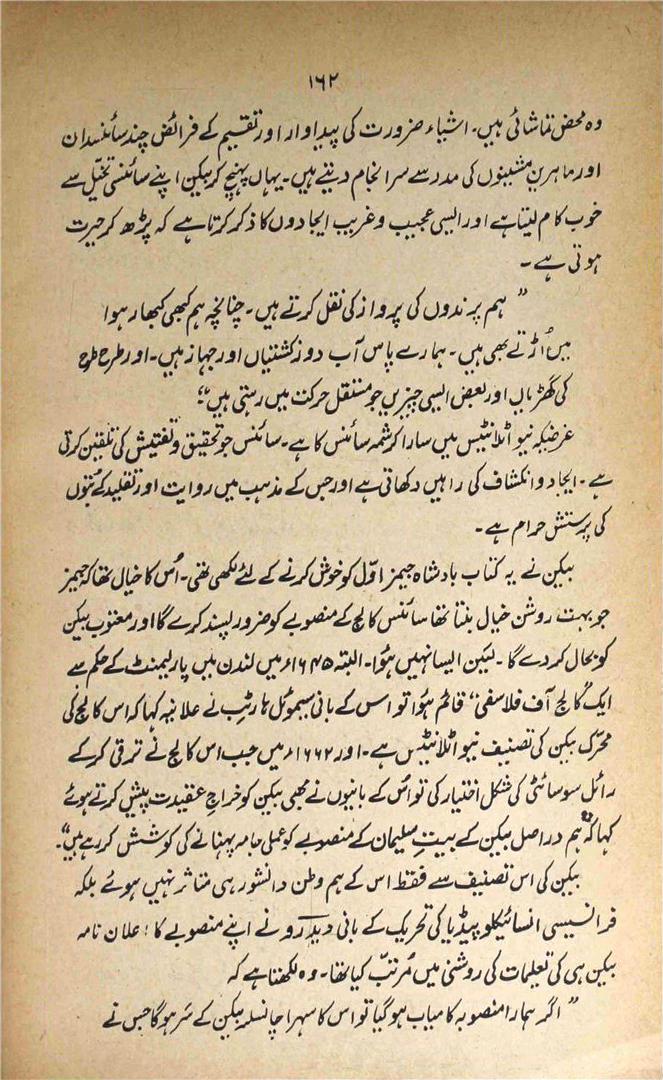 ۱۶۲
وہ محض تماشائی ہیں۔ اشیاء ضرورت کی پیداوار اور تقسیم کے فرائض چند سائنسدان
اور ماہرین مشینوں کی مدد سے سرانجام دیتے ہیں۔ یہاں پہنچ کر بیکن اپنے سائنسی تخیّل سے
خوب کام لیتا ہے اور ایسی عجیب و غریب ایجادوں کا ذکر کرتا ہے کہ پڑھ کر حیرت
ہوتی ہے۔
” ہم پرندوں کی پرواز کی نقل کرتے ہیں۔ چنانچہ ہم کبھی کبھار ہوا
میں اُڑتے بھی ہیں۔ ہمارے پاس آب دوز کشتیاں اور جہاز ہیں۔ اور طرح طرح
کی گھڑیاں اور بعض ایسی چیزیں جو مستقل حرکت میں رہتی ہیں“؛
غرضیکہ نیو اٹلانٹیس میں سارا کرشمہ سائنس کا ہے۔ سائنس جو تحقیق و تفتیش کی تلقین کرتی
ہے۔ ایجاد و انکشاف کی راہیں دکھاتی ہے اور جس کے مذہب میں روایت اور تقلید کے بُتوں
کی پرستش حرام ہے۔
بیکن نے یہ کتاب بادشاہ جیمز اوّل کو خوش کرنے کے لئے لکھی تھی۔ اُس کا خیال تھا کہ جیمز
جو بہت روشن خیال بنتا تھا سائنس کالج کے منصوبے کو ضرور پسند کرے گا اور معتوب بیکن
کو بحال کر دے گا۔ لیکن ایسا نہیں ہُوا۔ البتہ ۱۶۴۵ء میں لندن میں پارلیمنٹ کے حکم سے
ایک ”کالج آف فلاسفی“ قائم ہُوا تو اس کے بانی سیموئل ہارٹب نے علانیہ کہا کہ اس کالج کی
محرّک بیکن کی تصنیف نیو اٹلانٹیس ہے۔ اور ۱۶۶۲ء میں جب اس کالج نے ترقی کر کے
رائل سوسائٹی کی شکل اختیار کی تو اُس کے بانیوں نے بھی بیکن کو خراجِ عقیدت پیش کرتے ہوئے
کہا کہ ”ہم دراصل بیکن کے بیتِ سلیمان کے منصوبے کو عملی جامہ پہنانے کی کوشش کر رہے ہیں“۔
بیکن کی اس تصنیف سے فقط اس کے ہم وطن دانشور ہی متاثر نہیں ہوئے بلکہ
فرانسیسی انسائیکلوپیڈیا کی تحریک کے بانی دیدرو نے اپنے منصوبے کا اعلان نامہ
بیکن ہی کی تعلیمات کی روشنی میں مُرتّب کیا تھا۔ وہ لکھتا ہے کہ
” اگر ہمارا منصوبہ کامیاب ہو گیا تو اس کا سہرا چانسلر بیکن کے سَر ہو گا جس نے